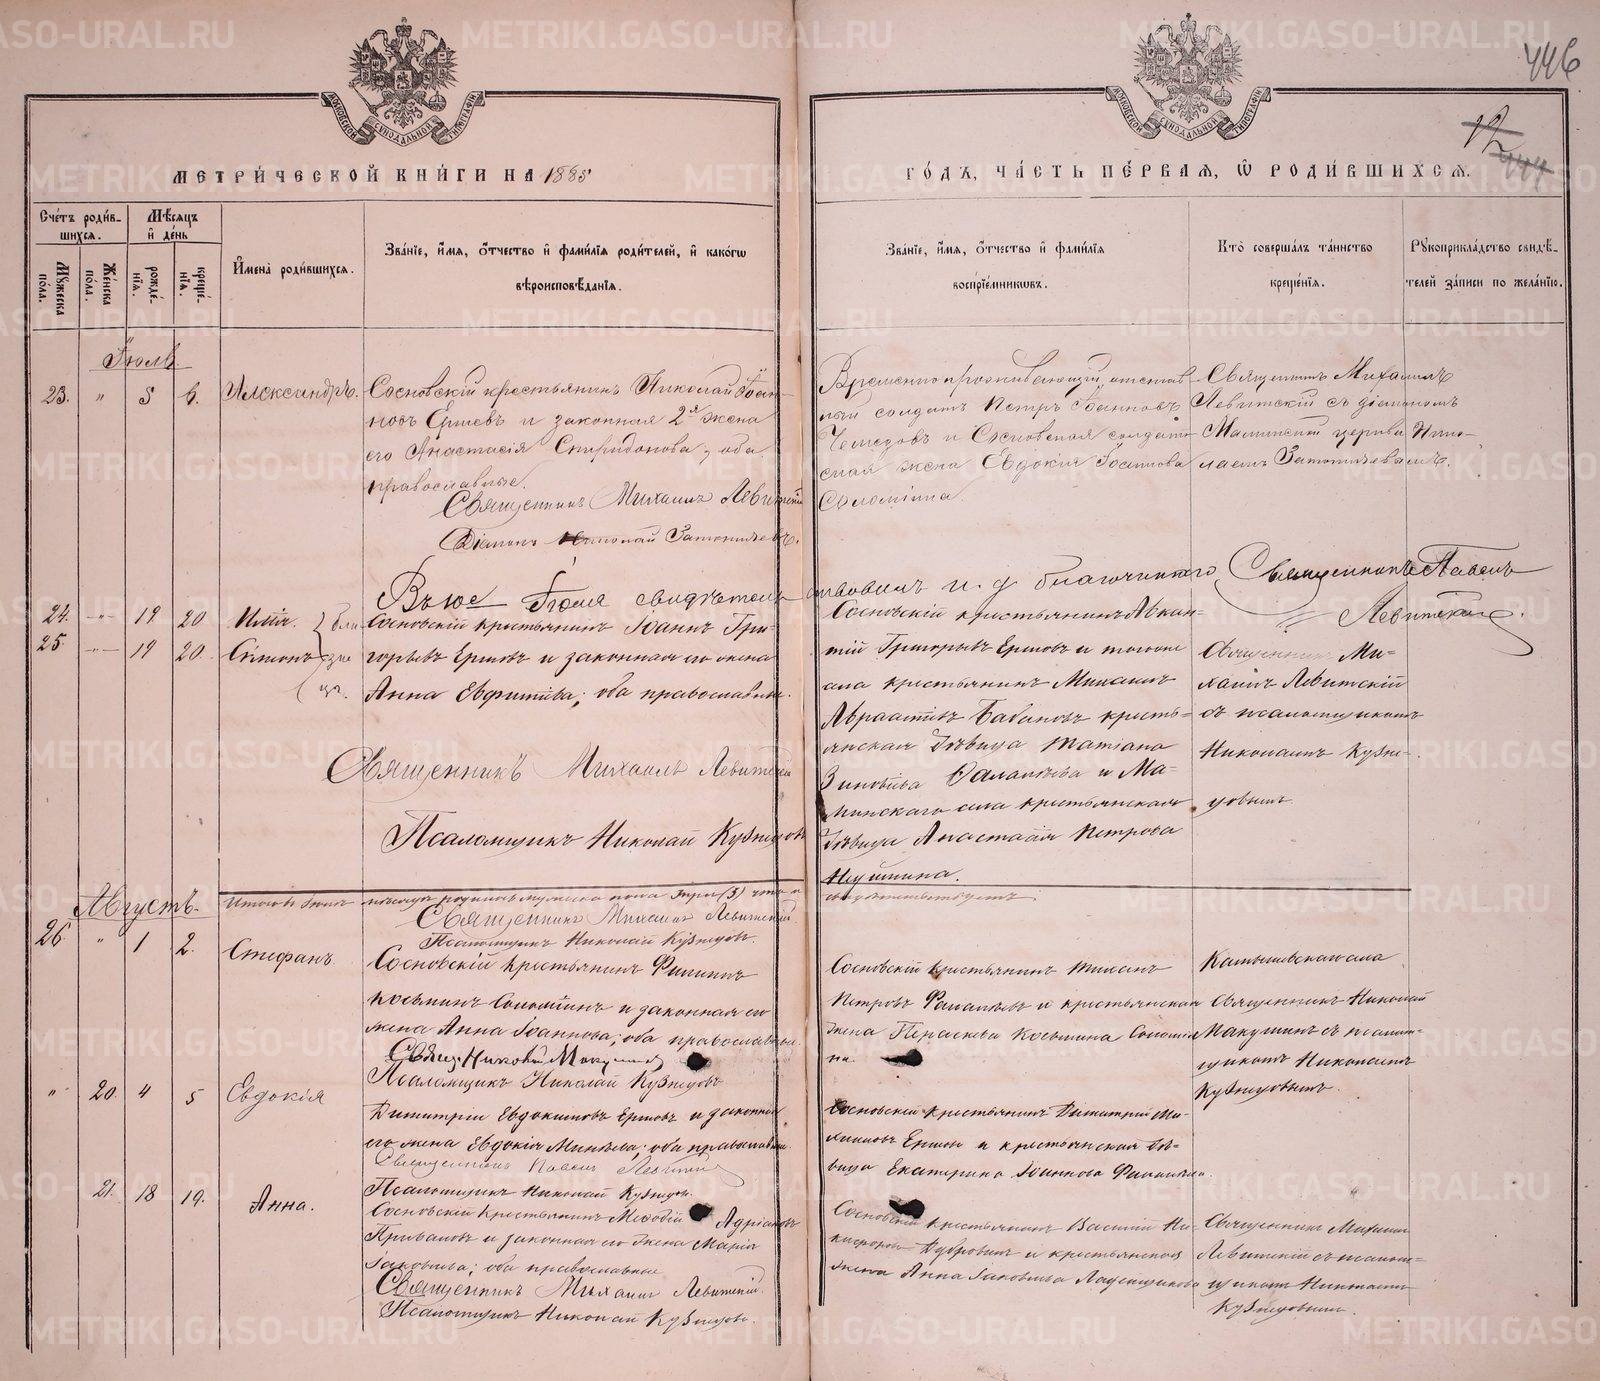 446
12
444
МОСКОВСКОЙ СѴНОДАЛЬНОЙ ТИПОГРАФІИ
МОСКОВСКОЙ СѴНОДАЛЬНОЙ ТИПОГРАФІИ
МЕТРИ́ЧЕСКОЙ КНИ́ГИ НА 1885
ГО́ДЪ, ЧА́СТЬ ПЕ́РВАѦ, Ѡ РОДИ́ВШИХСѦ.
Сче́тъ роди́вшихсѧ.
Мѣ́сѧцъ и҆ де́нь
Мꙋжеска по́ла.
Же́нска по́ла.
рожде́нїѧ.
креще́нїѧ.
И҆мена̀ роди́вшихсѧ.
Зва́нїе, и҆́мѧ, ѻ҆́тчество и҆ фами́лїѧ роди́телей, и҆ како́гѡ вѣроисповѣ́данїѧ.
Зва́нїе, и҆́мѧ, ѻ҆́тчество и҆ фами́лїѧ воспрїе́мникѡвъ.
Кто̀ соверша́лъ та́инство креще́нїѧ.
Рꙋкоприкла́дство свидѣ́телей за́писи по жела́нїю.
Іюль
23. " 5 6. Александръ.
Сосновскій крестьянинъ Николай Іоан-
новъ Ершевъ и законная 2я жена
его Анастасія Спиридонова, оба
православные.
Священникъ Михаилъ Левитскій
Діаконъ Николай Затопляевъ.
Временно проживающій отстав-
ный солдатъ Петръ Іоанновъ
и Сосновская солдат-
ская жена Евдокія
Соломіина.
Священникъ Михаилъ
Левитскій съ діакономъ
Маминской церкви Нико-
лаемъ
Въ юе Іюля свидѣтельствовалъ и. д. благочиннаго Священникъ Павелъ
Левитскій.
24. " 19 20 Илія.
25. " 19 20. Сімеонъ
близнецы.
Сосновскій крестьянинъ Іоаннъ Гри-
горьевъ Ершовъ и законная его жена
Анна Евфиміева; оба православные.
Священникъ Михаилъ Левитскій
Псаломщикъ Николай Кузнецовъ
Сосновскій крестьянинъ
Григорьевъ Ершовъ и тогоже
села крестьянинъ Михаилъ
Авраамовъ Бабиновъ кресть-
янская дѣвица Татіана
Зиновіева и Ма-
минскаго села крестьянская
дѣвица Анастасія Петрова
Священникъ Ми-
хаилъ Левитскій
съ псаломщикомъ
Николаемъ Кузне-
цовымъ.
Августъ.
Итого въ Іюлѣ мѣсяцѣ родилось мужеска пола три (3) чего и
свидѣтельствуемъ
Священникъ Михаилъ Левитскій
Псаломщикъ Николай Кузнецовъ.
26. " 1 2. Стефанъ.
Сосновскій крестьянинъ Филиппъ
Косьминъ Соломіинъ и законная его
жена Анна Іоаннова; оба православные.
Свящ. Николай Макушинъ
Псаломщикъ Николай Кузнецовъ
Сосновскій крестьянинъ
Петровъ и крестьянская
жена Параскева Косьмина Соломіи-
на.
Камышевскаго села
священникъ Николай
Макушинъ съ псалом-
щикомъ Николаемъ
Кузнецовымъ.
" 20. 4 5 Евдокія
Димитрій Евдокимовъ Ершовъ и законная
его жена Евдокія Минѣева; оба православные.
Священникъ Павелъ Левитскій
Псаломщикъ Николай Кузнецовъ.
Сосновскій крестьянинъ Димитрій Ми-
хаиловъ Ершовъ и крестьянская дѣ-
вица Екатерина Іоаннова
21. 18 19. Анна.
Сосновскій крестьянинъ Меѳодій Адріановъ
Приваловъ и законная его жена Марія
Іаковлева; оба православные
Священникъ Михаилъ Левитскій.
Псаломщикъ Николай Кузнецовъ.
Сосновскій крестьянинъ Василій Ни-
кифоровъ Дубровинъ и крестьянская
жена Анна Іаковлева Ладейщикова
Священникъ Михаилъ
Левитскій съ псалом-
щикомъ Николаемъ
Кузнецовымъ.
METRIKI.GASO-URAL.RU